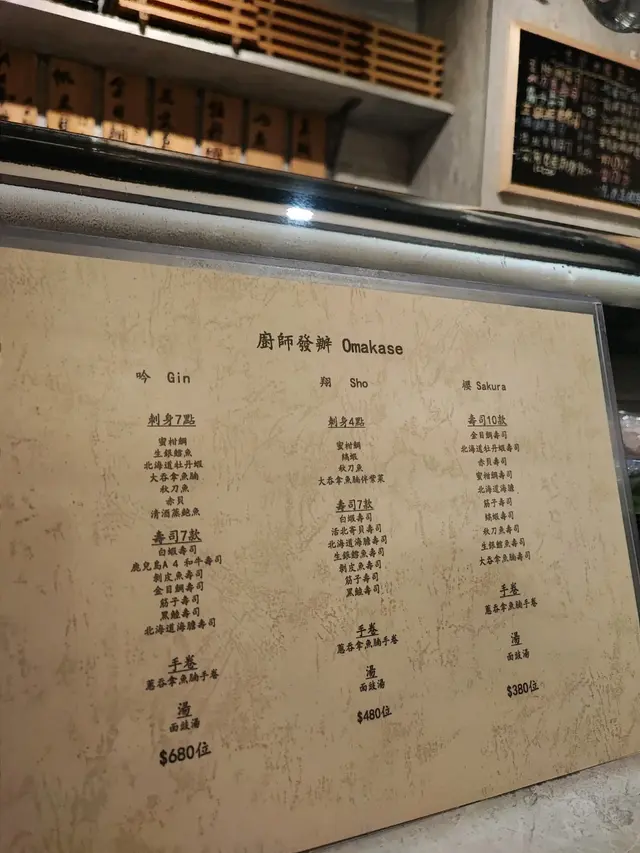 廚師發辦 Omakase
吟 Gin
刺身7點
蜜柑鯛
生銀鱈魚
北海道牡丹蝦
大吞拿魚腩
秋刀魚
赤貝
清酒蒸鮑魚
壽司7款
白蝦壽司
鹿兒島A 4 和牛壽司
剝皮魚壽司
金目鯛壽司
筋子壽司
黑鮑壽司
北海道海膽壽司
手卷
蔥吞拿魚腩手卷
湯
面豉湯
$680位
翔 Sho
刺身4點
蜜柑鯛
縞蝦
秋刀魚
大吞拿魚腩伴紫菜
壽司7款
白蝦壽司
活北寄貝壽司
北海道海膽壽司
生銀鱈魚壽司
剝皮魚壽司
筋子壽司
黑鮑壽司
手卷
蔥吞拿魚腩手卷
湯
面豉湯
$480位
櫻 Sakura
壽司10款
金目鯛壽司
北海道牡丹蝦壽司
赤貝壽司
蜜柑鯛壽司
北海道海膽
筋子壽司
縞蝦壽司
秋刀魚壽司
生銀鱈魚壽司
大吞拿魚腩壽司
手卷
蔥吞拿魚腩手卷
湯
面豉湯
$380位